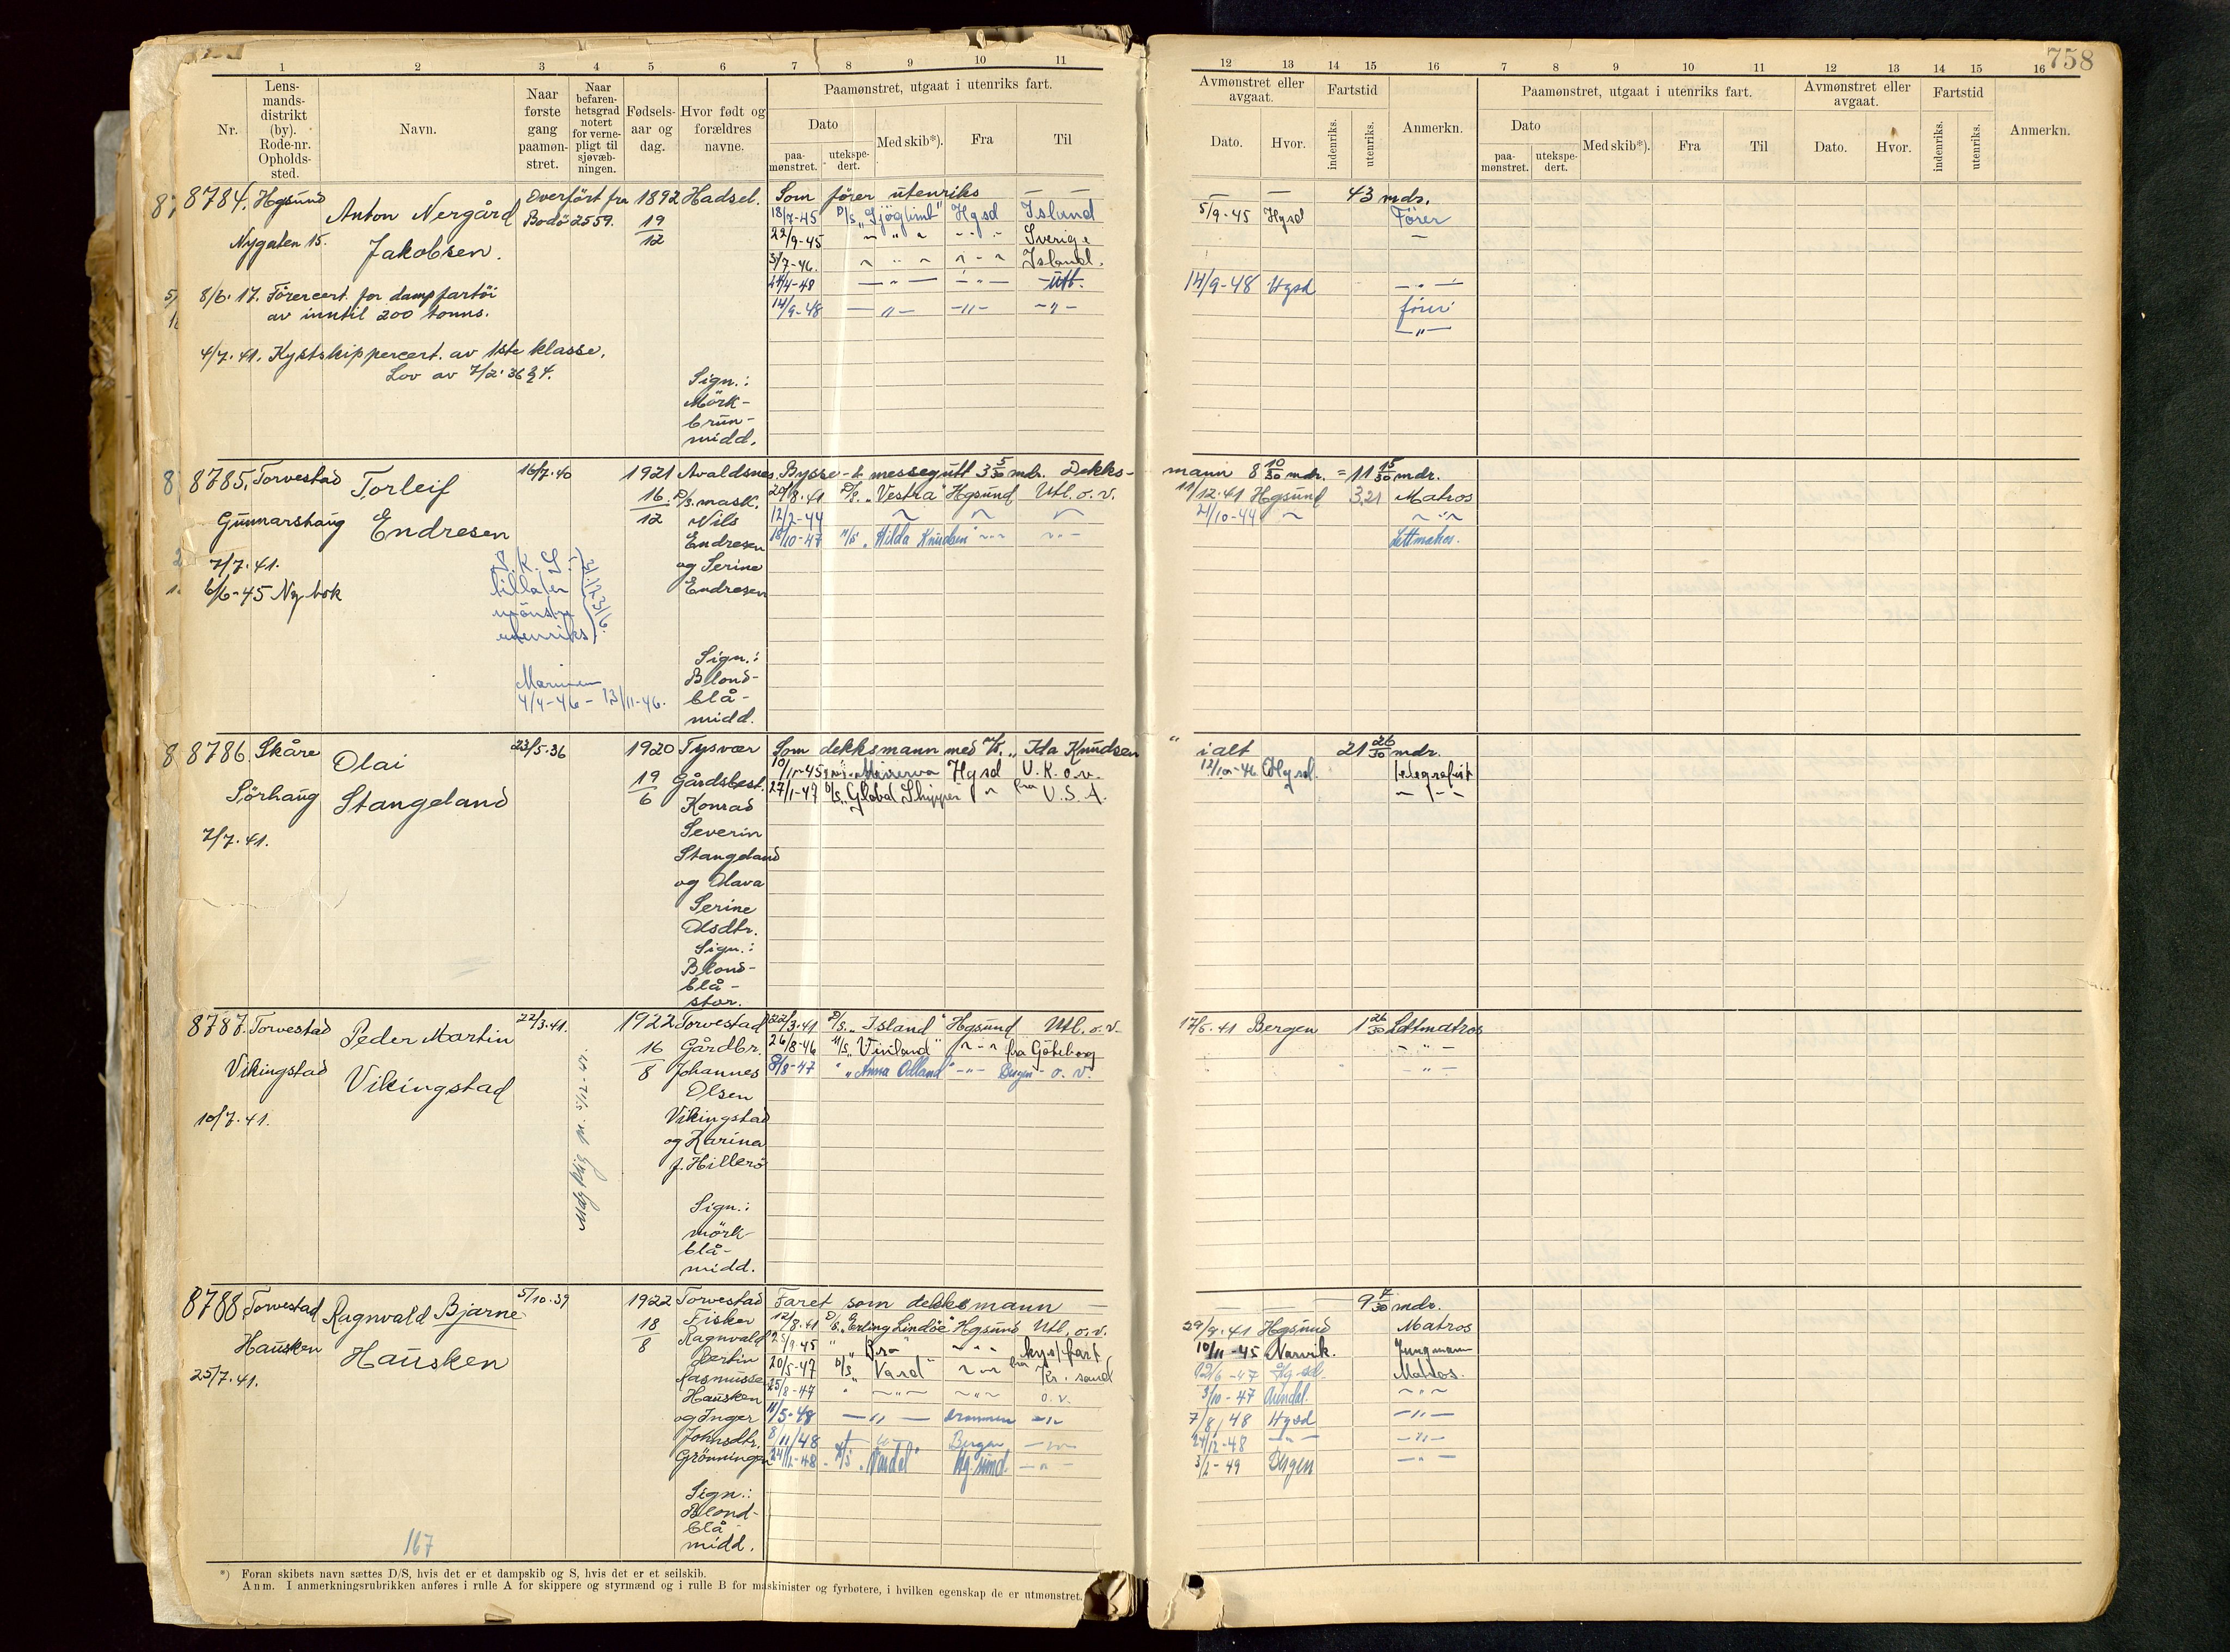 758
1 2 3 4 5 6 7 8 9 10 11
12 13 14 15 16 7 8 9 10 11 12 13 14 15 16
Nr.
Lens-
mands-
distrikt
(by).
Rode-nr.
Opholds-
sted.
Navn.
Naar
første
gang
paamøn-
stret.
Naar
befaren-
hetsgrad
notert
for verne-
pligt til
sjøvæb-
ningen.
Fødsels-
aar og
dag.
Hvor født og
forældres
navne.
Paamønstret, utgaat i utenriks fart.
Dato
paa-
mønstret.
utekspe-
dert.
Med skib*).
Fra
Til
Avmønstret eller
avgaat.
Dato.
Hvor.
Fartstid
indenriks.
utenriks.
Anmerkn.
Paamønstret, utgaat i utenriks fart.
Dato
paa-
mønstret.
utekspe-
dert.
Med skib*).
Fra
Til
Avmønstret eller
avgaat.
Dato.
Hvor.
Fartstid
indenriks.
utenriks.
Anmerkn.
8784. Hgsund
Nygaten 15.
Anton Nergård
Jakobsen.
Overført fra
Bodö 2559.
1892
19
12
Hadsel.
Som fører utenriks — —
— — 43 mdr.
18/7-45 D/S „Sjöglimt" Hgsd Island
5/9-45 Hgsd Fører
22/9-45 " " " Sverige
3/7-46. " " " Island.
24/4-48 — " — — " — Utl.
14/9-48 Hgsd — " —
14/9-48 — " — — " — — " —
fører
— " —
8/6-17. Førercert. for dampfartöi
av inntil 200 tonns.
4/7.41. Kystskippercert. av 1ste klasse.
Lov av 7/2.36 § 4.
Sign.:
Mörk-
brun-
midd.
8785. Torvestad
Gunnarshaug
7/7.41.
6/6-45 Ny bok
Torleif
Endresen
16/7.40
1921
16
12
Avaldsnes.
D/S. mask.
Nils
Endresen
og Serine
Endresen
Bysse- & messegutt 3 5/30 mdr. Dekks-
mann 8 10/30 mdr. = 11 15/30 mdr.
20/8.41 D/S. „Vestra" Hgsund Utl. o. v.
11/12.41 Hgsund 3,21 Matros
12/2-44
21/10-44
18/10-47 M/S „Hilda Knudsen
Lettmatros.
S. K. S.
tillater
mønstre
utenriks
Marinen
4/4-46 - 13/11-46.
Sign.:
Blond-
blå-
midd.
8786. Skåre
Sörhaug
7/7.41.
Olai
Stangeland
23/5.36
1920
19
6
Tysvær
Gårdsbest.
Konrad
Severin
Stangeland
og Olava
Serine
Olsdtr.
Sign.:
Blond-
blå-
stor.
Som dekksmann med M/S. „Ida Knudsen"
ialt 21 26/30 mdr.
Minerva Hgsd U.K. o.v.
12/10-46 Hgsd. telegrafist
27/1-47 D/S „Global Shipper " fra U.S.A.
8787. Torvestad
Vikingstad
10/7.41.
Peder Martin
Vikingstad
22/3.41.
1922
16
8
Torvestad
Gårdbr.
Johannes
Olsen
Vikingstad
og Karina
f. Hillerö
Sign.:
mörk-
blå-
midd.
22/3.41 D/S. „Island" Hgsund Utl. o. v.
17/5.41 Bergen 1 26/30 Lettmatros
26/8-46 M/S „Vinland" " - " fra Göteborg
— " —
8/8-47 " „Anna Odland" - " - Bergen - o. v.
— " —
8788. Torvestad
Hausken
25/7.41.
Ragnvald Bjarne
Hausken
5/10.39
1922
18
8
Torvestad
Fisker
Ragnvald
Bertin
Rasmussen
Hausken
og Inger
Johnsdtr.
Grönningen
Sign.:
Blond-
blå-
midd.
Faret som dekksmann —
— 9 7/30 mdr.
12/8.41 D/S. „Erling Lindöe" Hgsund Utl. o. v.
29/9.41 Hgsund Matros
kyst fart
10/11-45 Narvik. Jungmann
20/5-47 D/S „Vard" fra Kr. sand
Matros.
25/8-47 o. v.
3/10-47 Arendal.
11/5-48 — " — Drammen — " —
7/8/48 Hgsd — " —
8/11/48 Bergen
24/12-48 — " —
24/12-48 - „Vardel" Hg. sund. — " —
3/2-49 Bergen — " —
167
*) Foran skibets navn sættes D/S, hvis det er et dampskib og S, hvis det er et seilskib.
Anm. I anmerkningsrubrikken anføres i rulle A for skippere og styrmænd og i rulle B for maskinister og fyrbøtere, i hvilken egenskap de er utmønstret.